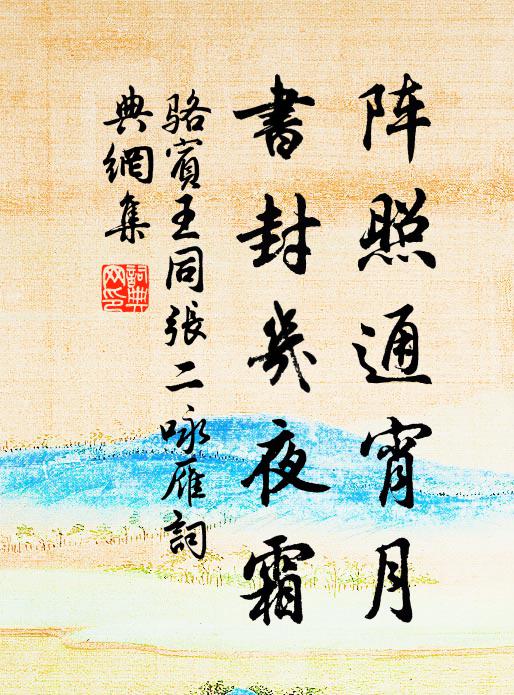 阵照通宵月
書封几夜霜
骆賓王同張二咏雁詞
典網集
詞典网印